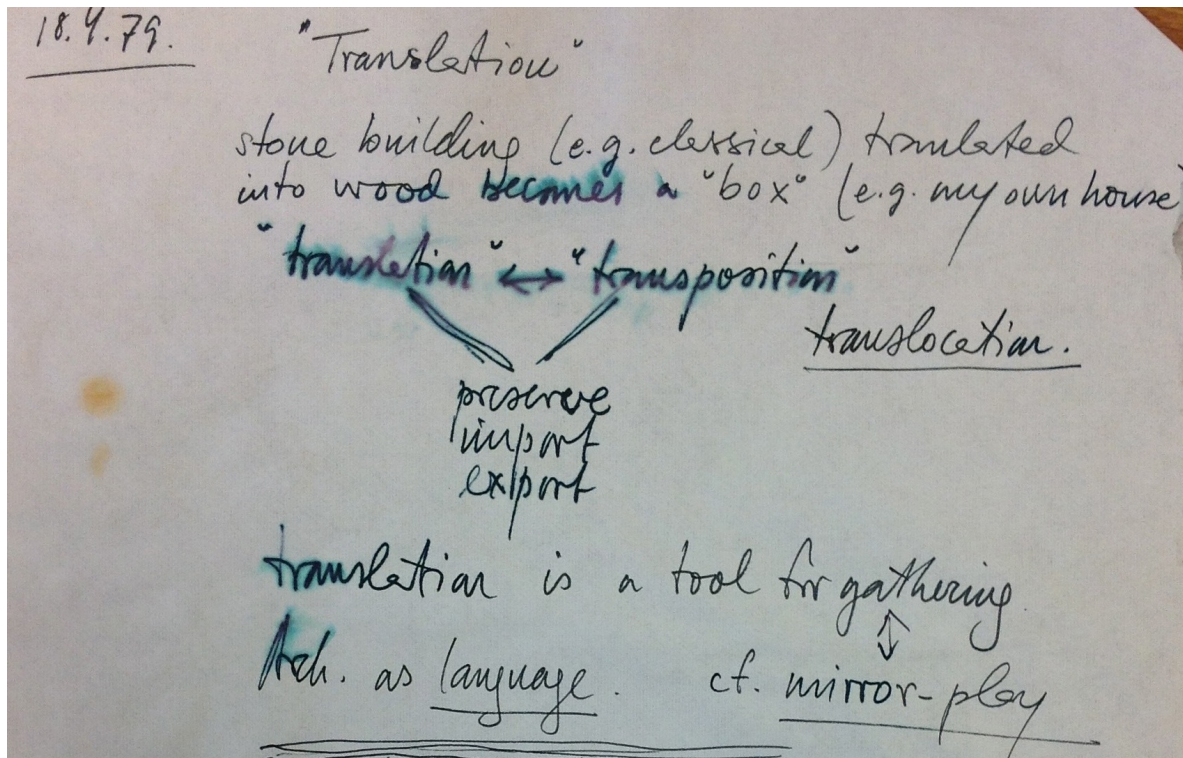 18.4.79.
"Translation"
stone building (e.g. classical) translated
into wood becomes a "box" (e.g. my own house
"translation" ↔ "transposition"
translocation.
preserve
import
export
translation is a tool for gathering
Arch. as language. cf. mirror-play